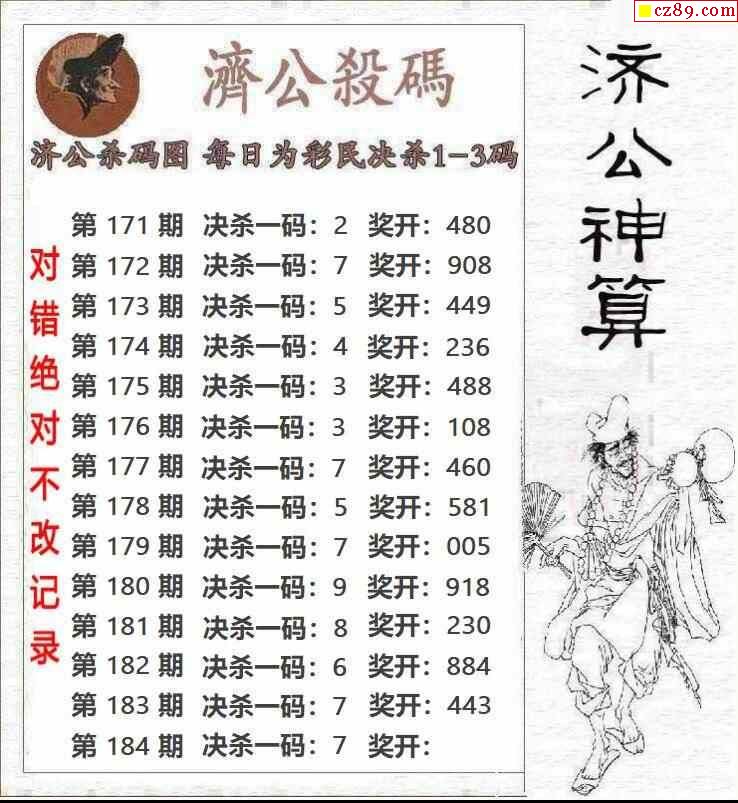 cz89.com
濟公殺碼
济公杀码图 每日为彩民决杀1-3码
第 171 期 决杀一码：2 奖开：480
第 172 期 决杀一码：7 奖开：908
第 173 期 决杀一码：5 奖开：449
第 174 期 决杀一码：4 奖开：236
第 175 期 决杀一码：3 奖开：488
第 176 期 决杀一码：3 奖开：108
第 177 期 决杀一码：7 奖开：460
第 178 期 决杀一码：5 奖开：581
第 179 期 决杀一码：7 奖开：005
第 180 期 决杀一码：9 奖开：918
第 181 期 决杀一码：8 奖开：230
第 182 期 决杀一码：6 奖开：884
第 183 期 决杀一码：7 奖开：443
第 184 期 决杀一码：7 奖开：
对错绝对不改记录
济公神算